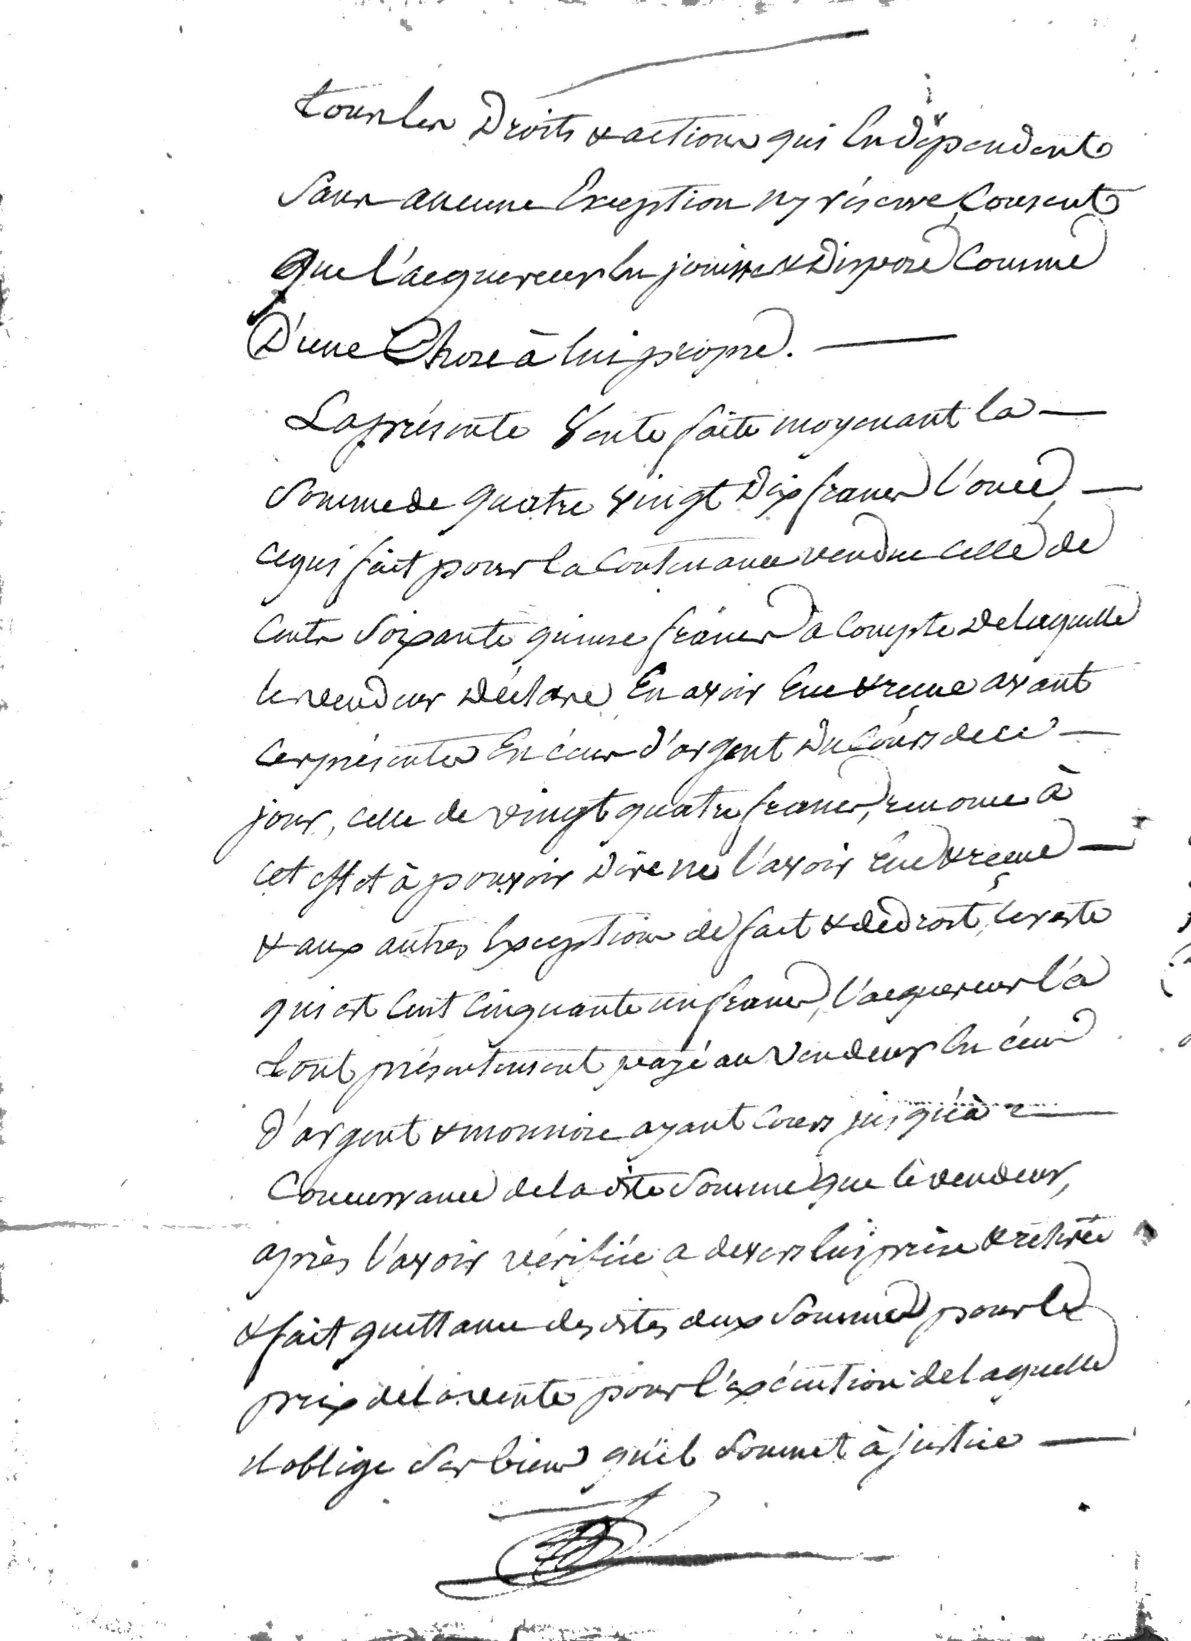 tous les Droits & actions qui En dépendent
Sans aucune Exception ny réserve Consent
Que l'acquereur En jouisse & Dispose Comme
D'une Chose à lui propre. —
La présente Vente faite moyenant la —
Somme de quatre vingt Dix francs l'once, —
ce qui fait pour la Contenance vendue celle de
Cents Soixante quinse francs à Compte de laquelle
le vendeur Déclare En avoir Eue & reçue avant
Ces présentes En écus d'argent Du Cours de ce —
jour, celle de vingt quatre francs, renonce à
cet effet à pouvoir Dire ne l'avoir Eue & reçue —
& aux autres Exceptions de fait & de droit, le reste
qui est Cent Cinquante un francs, l'acquereur l'a
tout présentement payé au Vendeur En écus
d'argent & monnoie ayant Cours jusqu'à —
Concurrance de la dite Somme que le vendeur,
après l'avoir vérifiée a devers lui prise & retirée
& fait quittance des dites deux Sommes pour le
prix de la vente pour l'éxécution de laquelle
il oblige Ses biens qu'il Soumet à justice —